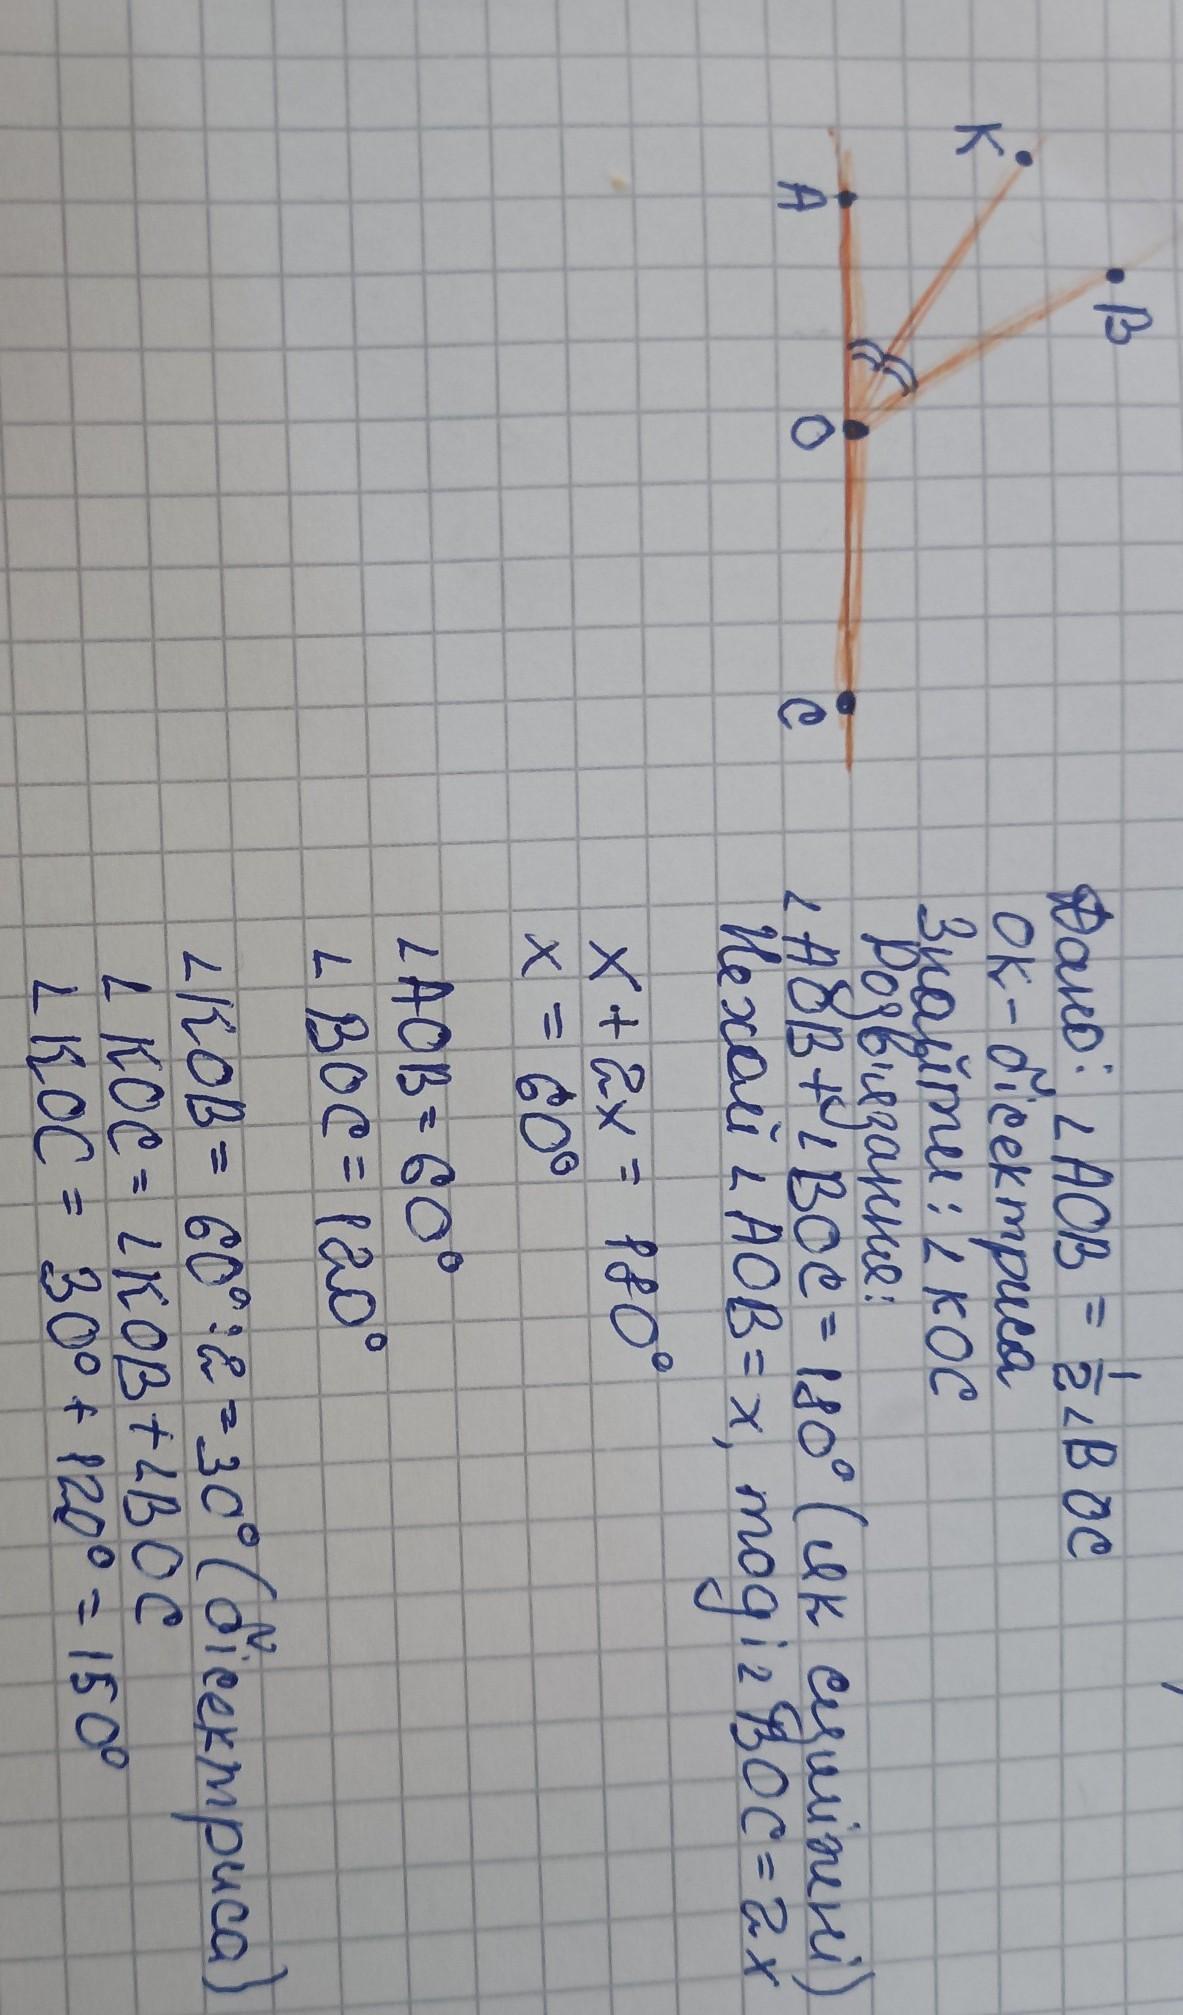 K
B
A
O
C
Дано: ∠AOB = 1/2 ∠BOC
OK - бісектриса
Знайти: ∠KOC
Розвʼязання:
∠AOB + ∠BOC = 180° (як суміжні)
Нехай ∠AOB = x, тоді ∠BOC = 2x
x + 2x = 180°
x = 60°
∠AOB = 60°
∠BOC = 120°
∠KOB = 60° : 2 = 30° (бісектриса)
∠KOC = ∠KOB + ∠BOC
∠KOC = 30° + 120° = 150°